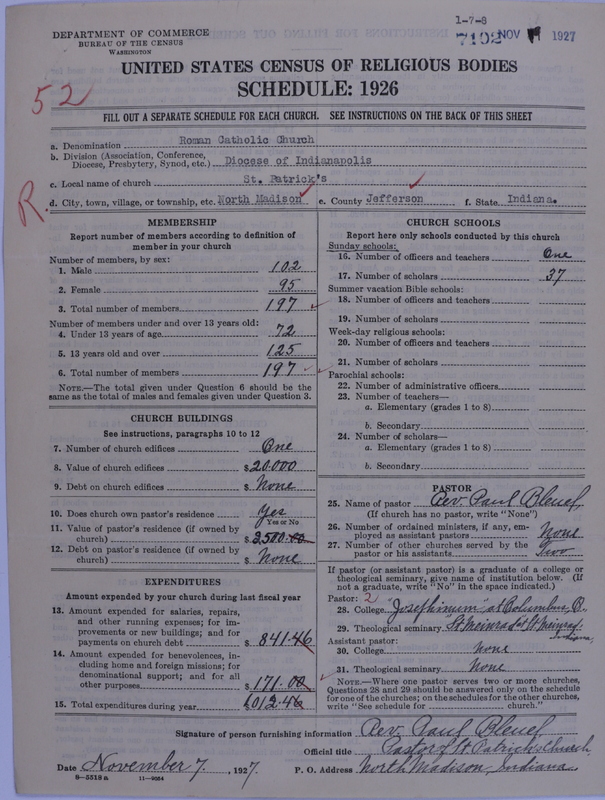 1-7-8
7102 NOV 1927
DEPARTMENT OF COMMERCE
BUREAU OF THE CENSUS
WASHINGTON
UNITED STATES CENSUS OF RELIGIOUS BODIES
SCHEDULE: 1926
52
FILL OUT A SEPARATE SCHEDULE FOR EACH CHURCH. SEE INSTRUCTIONS ON THE BACK OF THIS SHEET
a. Denomination Roman Catholic Church
b. Division (Association, Conference, Diocese, Presbytery, Synod, etc.) Diocese of Indianapolis
c. Local name of church St. Patrick's
R.
d. City, town, village, or township, etc. North Madison e. County Jefferson f. State Indiana.
MEMBERSHIP
Report number of members according to definition of
member in your church
Number of members, by sex:
1. Male 102
2. Female 95
3. Total number of members 197
Number of members under and over 13 years old:
4. Under 13 years of age 72
5. 13 years old and over 125
6. Total number of members 197
NOTE.—The total given under Question 6 should be
same as the total of males and females given under Question 3.
CHURCH BUILDINGS
See instructions, paragraphs 10 to 12
7. Number of church edifices One
8. Value of church edifices $20.000
9. Debt on church edifices $None
10. Does church own pastor's residence? Yes
Yes or No
11. Value of pastor's residence (if owned by
church) $2,500.00
12. Debt on pastor's residence (if owned by
church) $None
EXPENDITURES
Amount expended by your church during last fiscal year
13. Amount expended for salaries, repairs,
and other running expenses; for im-
provements or new buildings; and for
payments on church debt $841.46
14. Amount expended for benevolences, in-
cluding home and foreign missions; for
denominational support; and for all
other purposes $171.00
15. Total expenditures during year 1012.46
CHURCH SCHOOLS
Report here only schools conducted by this church
Sunday schools:
16. Number of officers and teachers One
17. Number of scholars 37
Summer vacation Bible schools:
18. Number of officers and teachers
19. Number of scholars
Week-day religious schools:
20. Number of officers and teachers
21. Number of scholars
Parochial schools:
22. Number of administrative officers
23. Number of teachers—
a. Elementary (grades 1 to 8)
b. Secondary
24. Number of scholars—
a. Elementary (grades 1 to 8)
b. Secondary
PASTOR
25. Name of pastor Rev. Paul Bleuel
(If church has no pastor, write "None")
26. Number of ordained ministers, if any, em-
ployed as assistant pastors None
27. Number of other churches served by the
pastor or his assistants Two
If pastor (or assistant pastor) is a graduate of a college or
theological seminary, give name of institution below. (If
not a graduate, write "No" in the space indicated.)
Pastor: 2
28. College "Josephinum" at Columbus, O.
29. Theological seminary St. Meinrad at St. Meinrad, Indiana,
Assistant pastor:
30. College None
31. Theological seminary None
NOTE.—Where one pastor serves two or more churches,
Questions 28 and 29 should be answered only on the schedule
for one of the churches; on the schedules for the other churches,
write "See schedule for church."
Signature of person furnishing information Rev. Paul Bleuel
Official title Pastor of St Patrick's church
Date November 7, 1927. P. O. Address North Madison, Indiana
8—5518 a 11—9064